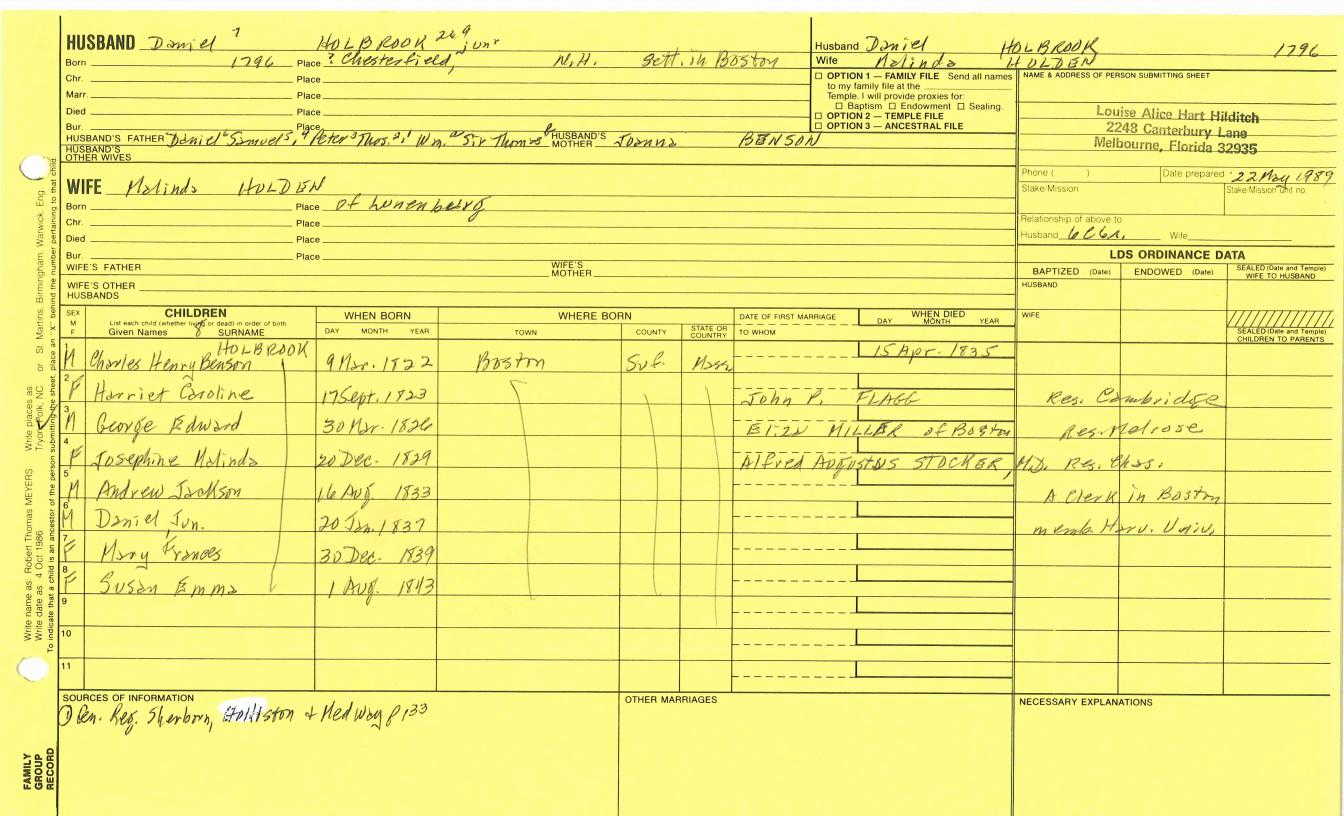 HUSBAND Daniel 7 HOLBROOK 249 junr
Born 1796 Place ? Chesterfield, N.H. Sett. in Boston
Chr. Place
Marr. Place
Died Place
Bur. Place
HUSBAND'S FATHER Daniel6 Samuel5, 4 Peter3 Thos.2,1 Wm.a Sir Thomas HUSBAND'S MOTHER Joanna BENSON
HUSBAND'S OTHER WIVES
Husband Daniel HOLBROOK 1796
Wife Malinda HOLDEN
☐ OPTION 1 — FAMILY FILE Send all names
to my family file at the
Temple. I will provide proxies for:
☐ Baptism ☐ Endowment ☐ Sealing.
☐ OPTION 2 — TEMPLE FILE
☐ OPTION 3 — ANCESTRAL FILE
NAME & ADDRESS OF PERSON SUBMITTING SHEET
Louise Alice Hart Hilditch
2248 Canterbury Lane
Melbourne, Florida 32935
Phone ( ) Date prepared 22 May 1989
Stake/Mission Stake/Mission unit no.
Relationship of above to
Husband 6C6r. Wife
WIFE Malinda HOLDEN
Born Place of Lunenburg
Chr. Place
Died Place
Bur. Place
WIFE'S FATHER WIFE'S MOTHER
WIFE'S OTHER HUSBANDS
LDS ORDINANCE DATA
BAPTIZED (Date) ENDOWED (Date) SEALED (Date and Temple) WIFE TO HUSBAND
HUSBAND
WIFE
SEALED (Date and Temple) CHILDREN TO PARENTS
SEX M F CHILDREN WHEN BORN WHERE BORN DATE OF FIRST MARRIAGE WHEN DIED
List each child (whether living or dead) in order of birth
Given Names 8 SURNAME DAY MONTH YEAR TOWN COUNTY STATE OR COUNTRY TO WHOM DAY MONTH YEAR
1 M Charles Henry Benson HOLBROOK 9 Mar. 1822 Boston Suf. Mass 15 Apr. 1835
2 F Harriet Caroline 17 Sept. 1823 John P. FLAGG Res. Cambridge
3 M George Edward 30 Mar. 1826 Eliza MILLER of Boston Res. Melrose
4 F Josephine Malinda 20 Dec. 1829 Alfred Augustus STOCKER, M.D. Res. Chas.
5 M Andrew Jackson 16 Aug 1833 A Clerk in Boston
6 M Daniel, Jun. 20 Jan. 1837 memb. Harv. Univ.
7 F Mary Frances 30 Dec. 1839
8 F Susan Emma 1 Aug. 1843
9
10
11
SOURCES OF INFORMATION
① Gen. Reg. Sherborn, Holliston + Medway p 133
OTHER MARRIAGES
NECESSARY EXPLANATIONS
Write name as: Robert Thomas MEYERS Write places as
Write date as: 4 Oct 1986 Tryon, Polk, NC or St. Martins, Birmingham, Warwick, Eng.
To indicate that a child is an ancestor of the person submitting the sheet, place an "X" behind the number pertaining to that child.
FAMILY
GROUP
RECORD